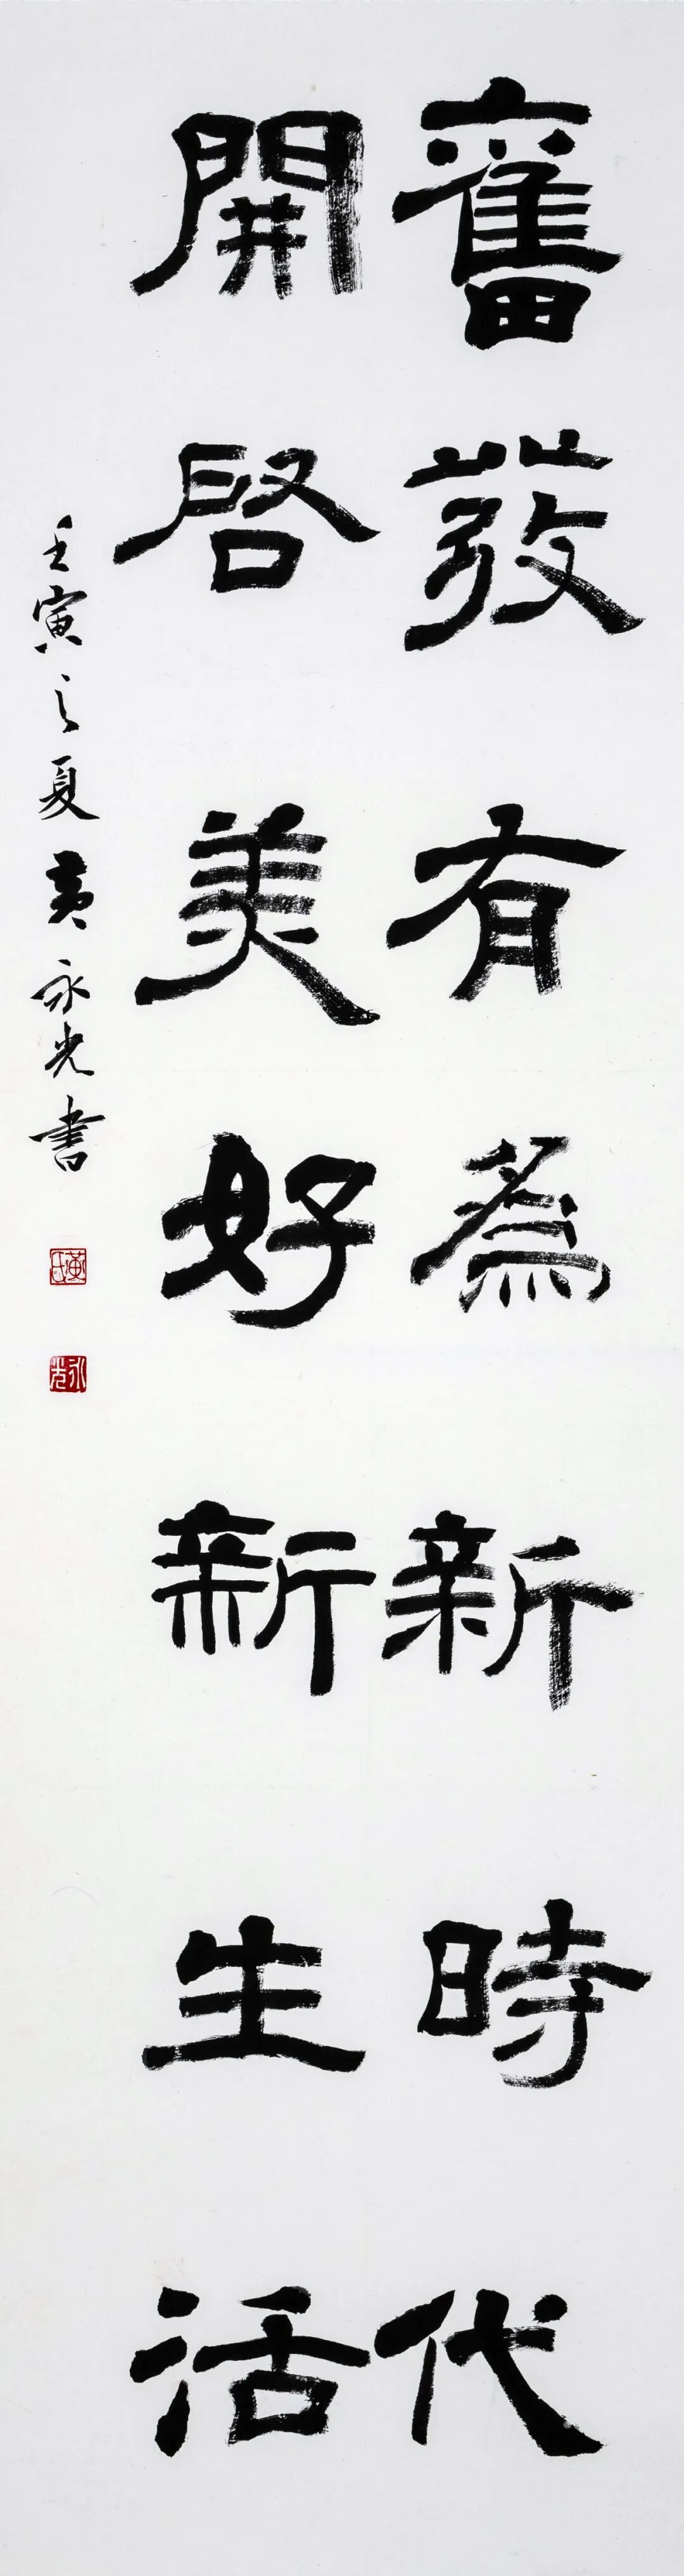 奮發有為新時代
開啓美好新生活
壬寅之夏黃永光書
黃氏
永光